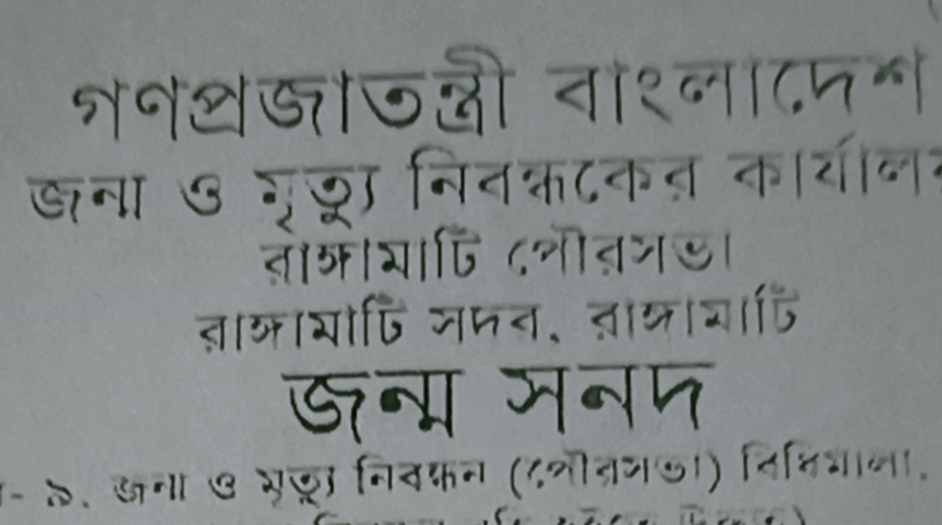 গণপ্রজাতন্ত্রী বাংলাদেশ
জন্ম ও মৃত্যু নিবন্ধকের
রাঙ্গামাটি পৌরসভা
রাঙ্গামাটি সদর, রাঙ্গামাটি
জন্ম সনদ
- ৯, জন্ম ও মৃত্যু নিবন্ধন (পৌরসভা) বিধিমালা,